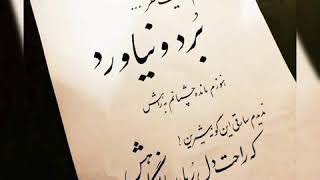 بُرد و نیاورد
هنوزم مانده چشمانم به راهش
ندیدم سارقی این گونه شیرین !
که راحت دل رباید با نگاهش